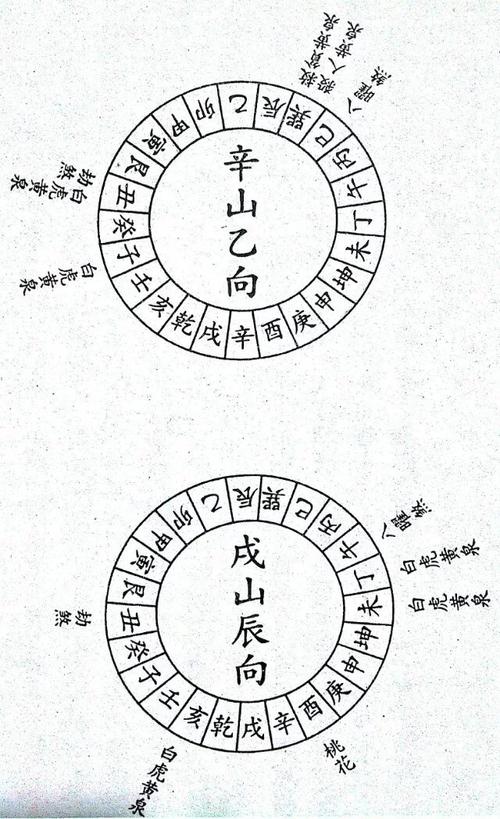 救貧黃泉
殺人黃泉
八曜煞
乙辰巽巳丙午丁未坤申庚酉辛戌乾亥壬子癸丑艮寅甲卯
辛山乙向
劫煞
白虎黃泉
白虎黃泉
八曜煞
白虎黃泉
白虎黃泉
乙辰巽巳丙午丁未坤申庚酉辛戌乾亥壬子癸丑艮寅甲卯
戌山辰向
劫煞
桃花
白虎黃泉